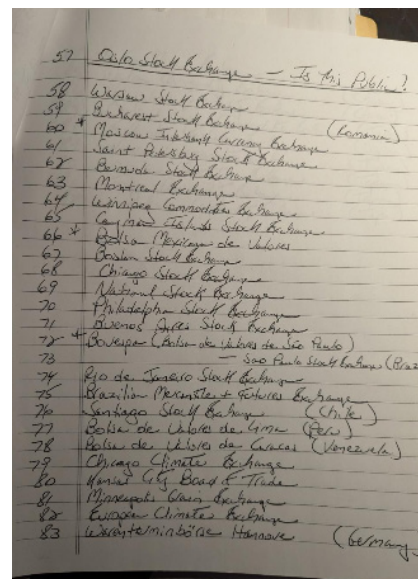 57 Oslo Stock Exchange — Is this Public?
58 Warsaw Stock Exchange
59 Bucharest Stock Exchange (Romania)
60 * Moscow Interbank Currency Exchange
61 Saint Petersburg Stock Exchange
62 Bermuda Stock Exchange
63 Montreal Exchange
64 Winnipeg Commodities Exchange
65 Cayman Islands Stock Exchange
66 * Bolsa Mexicana de Valores
67 Boston Stock Exchange
68 Chicago Stock Exchange
69 National Stock Exchange
70 Philadelphia Stock Exchange
71 Buenos Aires Stock Exchange
72 * Bovespa (Bolsa de Valores de São Paulo)
73 — Sao Paulo Stock Exchange (Braz
74 Rio de Janeiro Stock Exchange
75 Brazilian Mercantile + Futures Exchange
76 Santiago Stock Exchange (Chile)
77 Bolsa de Valores de Lima (Peru)
78 Bolsa de Valores de Caracas (Venezuela)
79 Chicago Climate Exchange
80 Kansas City Board of Trade
81 Minneapolis Grain Exchange
82 European Climate Exchange
83 Warenterminbörse Hannove (Germany